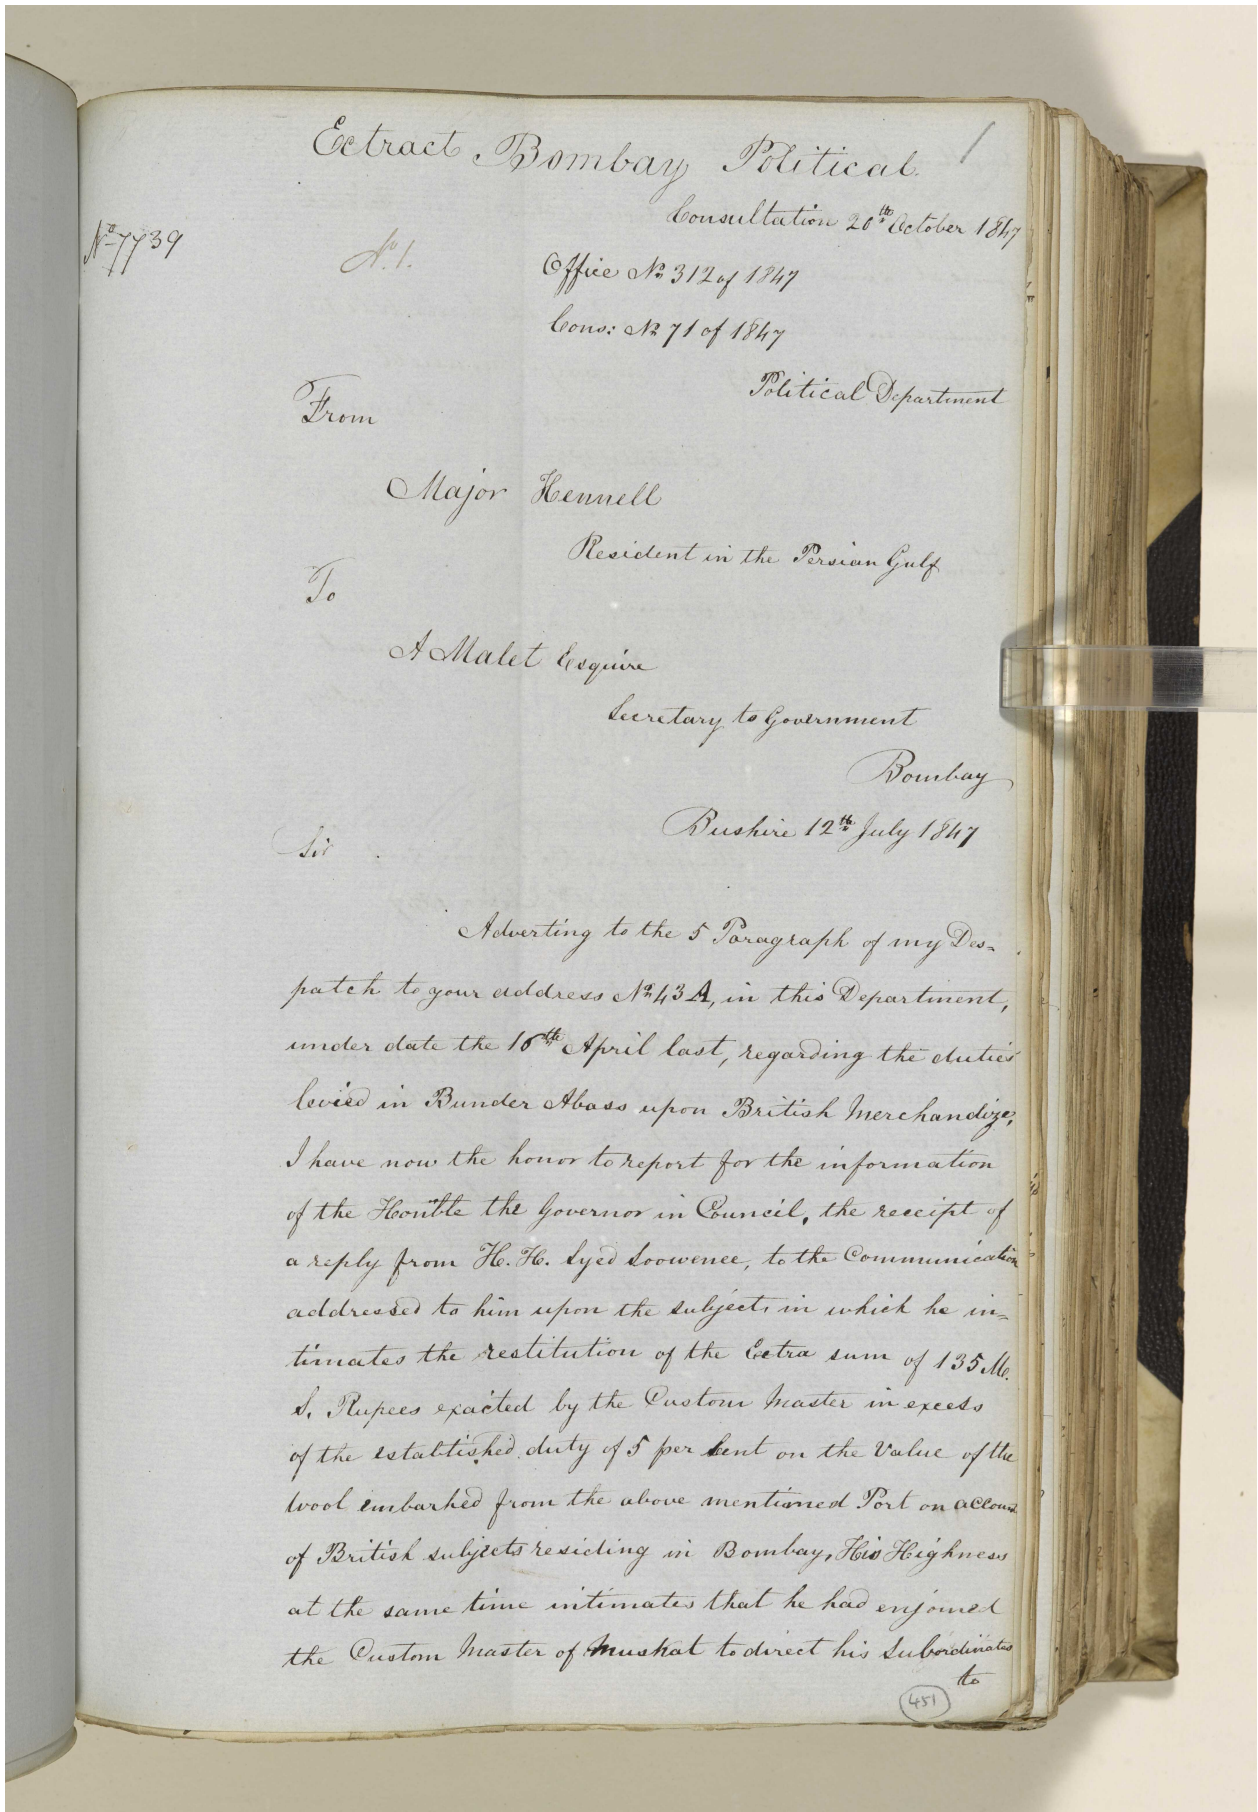 Extract Bombay Political.
1
Consultation 20th October 1847
No 7739
No 1.
Office No 312 of 1847
Cons: No 71 of 1847
Political Department
From
Major Hennell
Resident in the Persian Gulf
To
A Malet Esquire
Secretary to Government
Bombay
Bushire 12th July 1847
Sir
Adverting to the 5 Paragraph of my Des=
patch to your address No 43 A, in this Department,
under date the 16th April last, regarding the duties
levied in Bunder Abass upon British Merchandize,
I have now the honor to report for the information
of the Honble the Governor in Council, the receipt of
a reply from H. H. Syed Soowenee, to the Communication
addressed to him upon the subject, in which he in=
timates the restitution of the Extra sum of 135 M.
S. Rupees exacted by the Custom Master in excess
of the established duty of 5 per Cent on the Value of the
wool embarked from the above mentioned Port on account
of British subjects residing in Bombay, His Highness
at the same time intimates that he had enjoined
the Custom Master of Muskat to direct his Subordinates
to
451